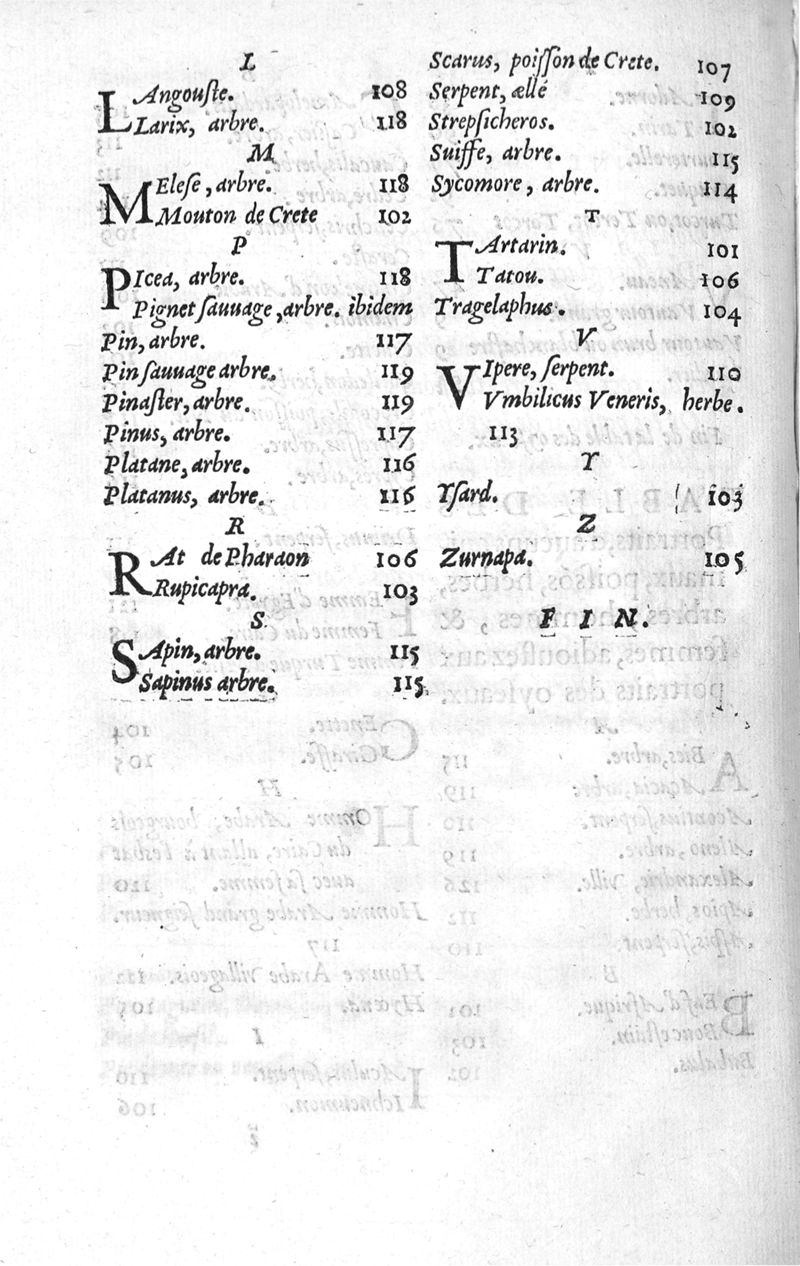 L
LAngouſte. 108
Larix, arbre. 118
M
MEleſe, arbre. 118
Mouton de Crete 102
P
PIcea, arbre. 118
Pignet ſauuage, arbre. ibidem
Pin, arbre. 117
Pin ſauuage arbre. 119
Pinaſter, arbre. 119
Pinus, arbre. 117
Platane, arbre. 116
Platanus, arbre. 116
R
RAt de Pharaon 106
Rupicapra. 103
S
SApin, arbre. 115
Sapinus arbre. 115
Scarus, poiſſon de Crete. 107
Serpent, ællé 109
Strepſicheros. 102
Suiffe, arbre. 115
Sycomore, arbre. 114
T
TArtarin. 101
Tatou. 106
Tragelaphus. 104
V
VIpere, ſerpent. 110
Vmbilicus Veneris, herbe.
113
Y
Yſard. 103
Z
Zurnapa. 105
FIN.